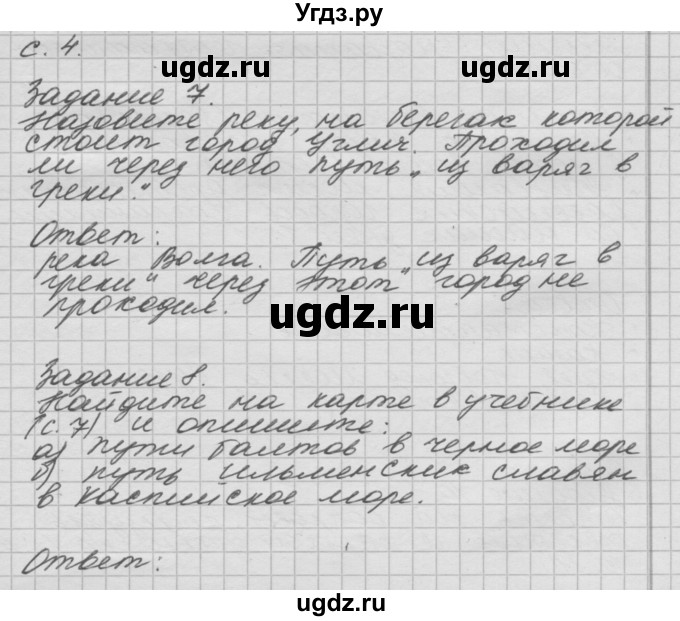 Угдз.ру
с. 4.
ugdz.ru
ugdz.ru
Задание 7.
Назовите реку, на берегах которой
стоит город Углич. Проходил
ли через него путь „из варяг в
греки."
Ответ:
река Волга. Путь „из варяг в
греки" через этот город не
проходил.
ugdz.ru
Задание 8.
Найдите на карте в учебнике
(с. 7) и опишите:
а) пути балтов в черное море
б) путь ильменских славян
в каспийское море.
ugdz.ru
ugdz.ru
Ответ:
ugdz.ru